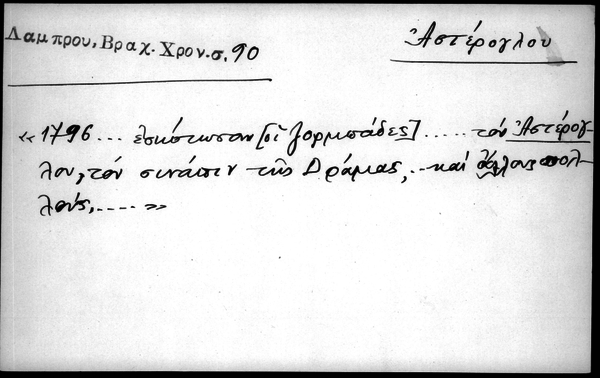 Λαμπρου, Βραχ. Χρον. σ. 90
Ἀστέρογλου
«1796 ... ἐσκότωσαν [οἱ ζορμπάδες] ..... τόν Ἀστέρογ-
λου, τόν σινάπιν τῆς Δράμας, .. καί ἄλλους πολ-
λούς, ..... »